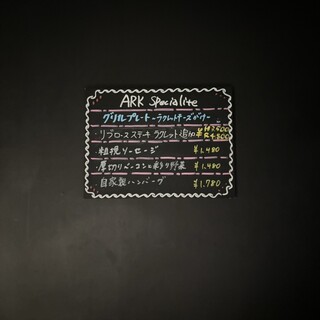 ARK Specialite
グリルプレート-ラクレットチーズがけ-
・リブロースステーキ ラクレット追加
・粗挽ソーセージ ¥1,480
・厚切りベーコンと彩り野菜 ¥1,480
・自家製ハンバーグ ¥1,780